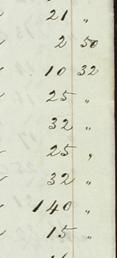 21 "
2 50
10 32
25 "
32 "
25 "
32 "
140 "
15 "